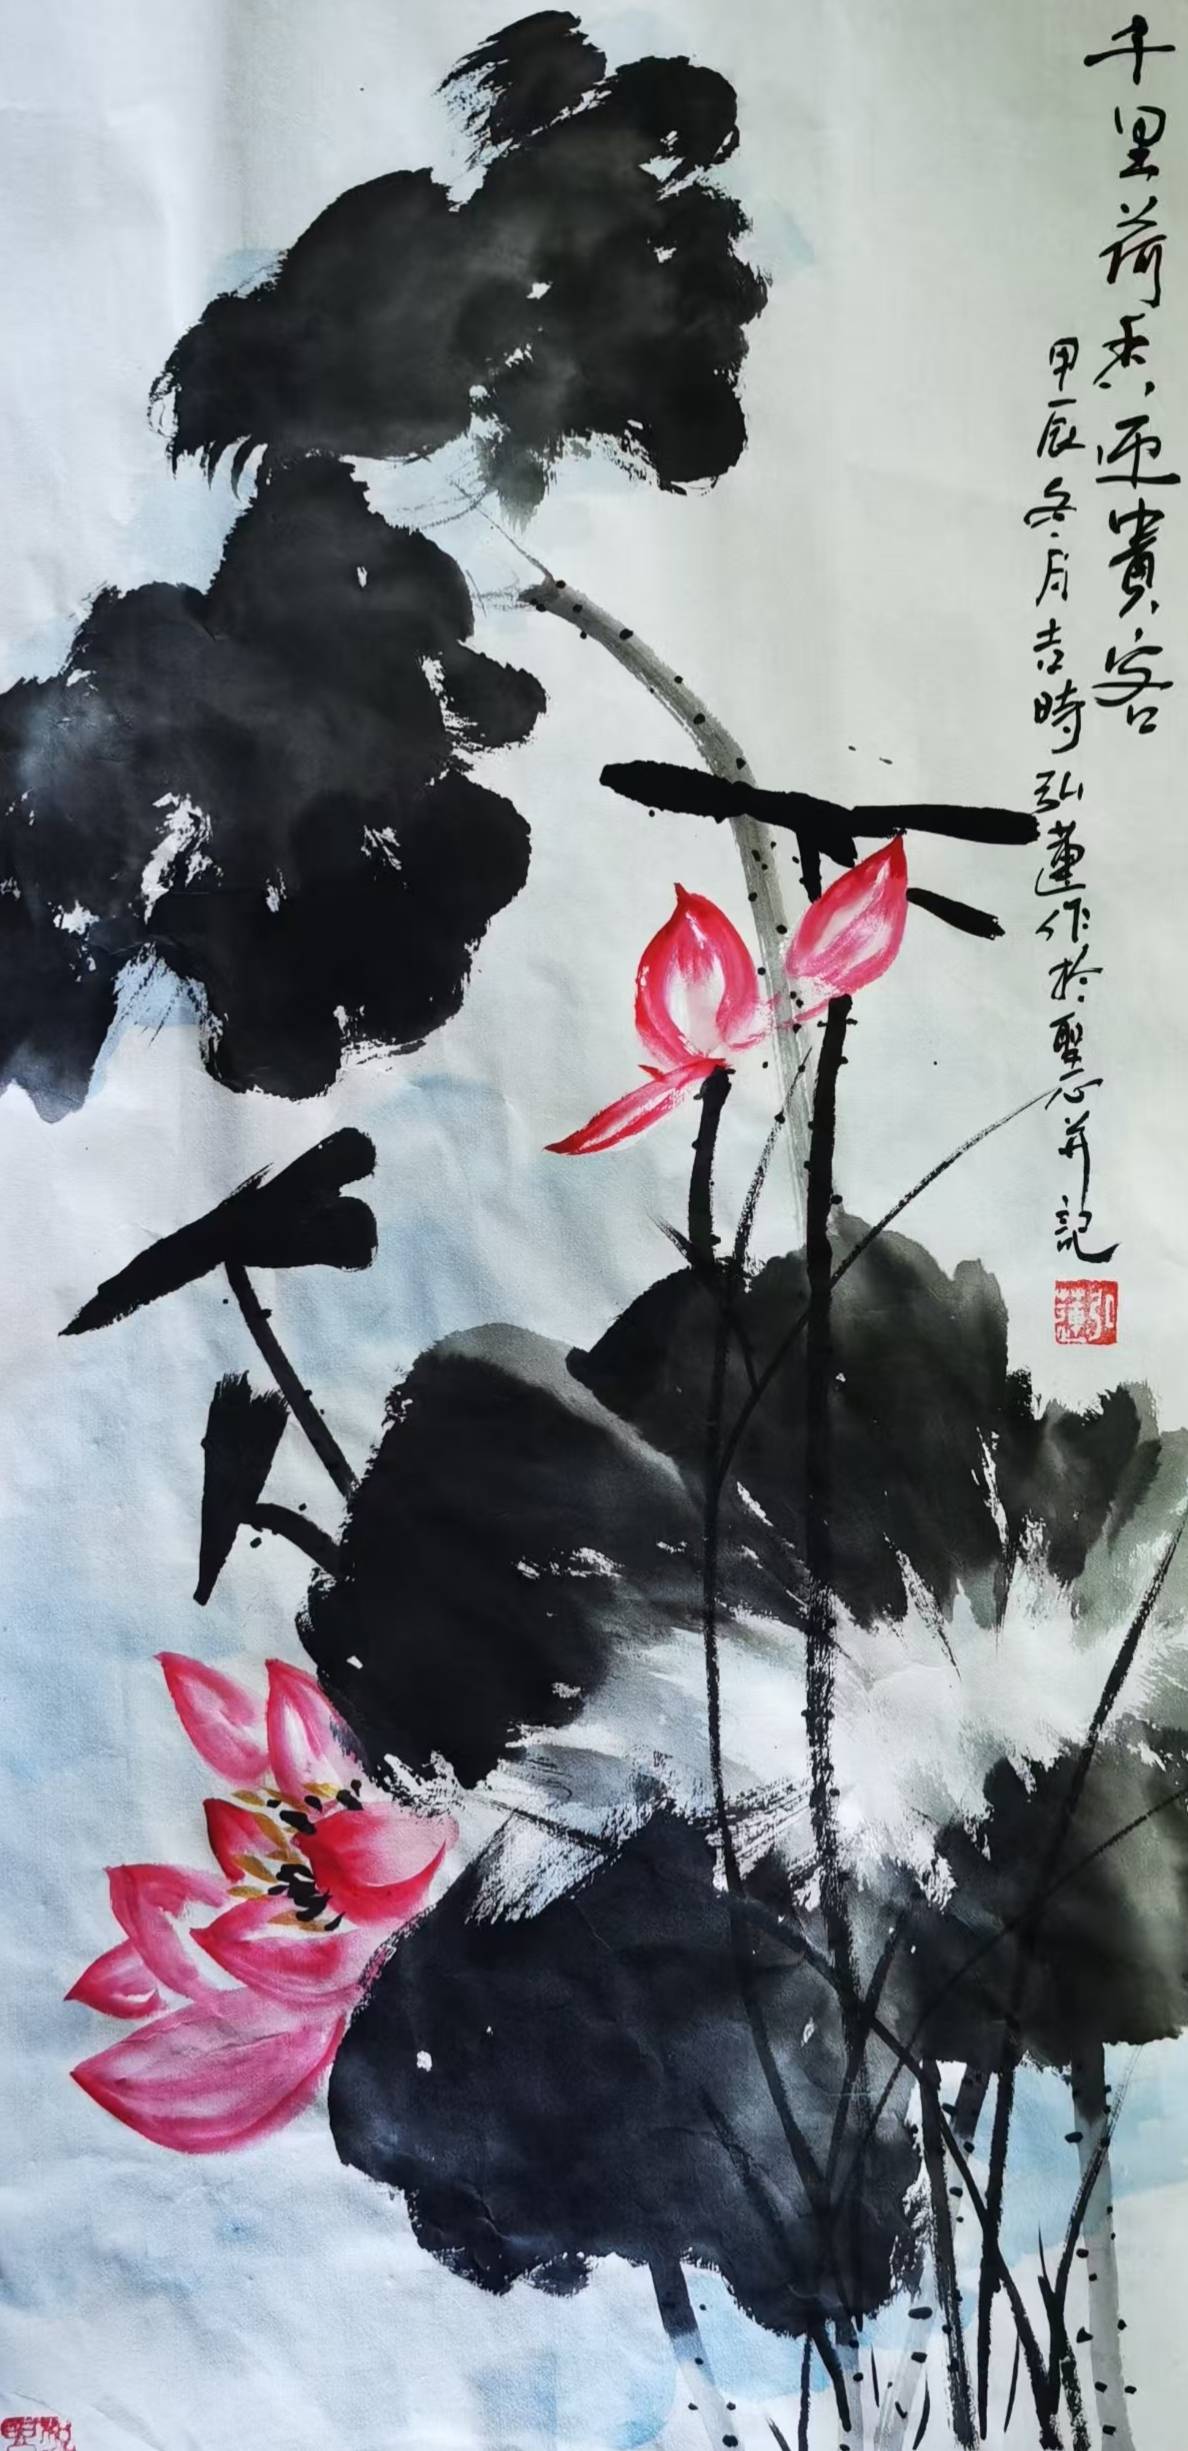 千里荷香迎貴客
甲辰冬月吉時弘蓮作於聖心並記
弘蓮